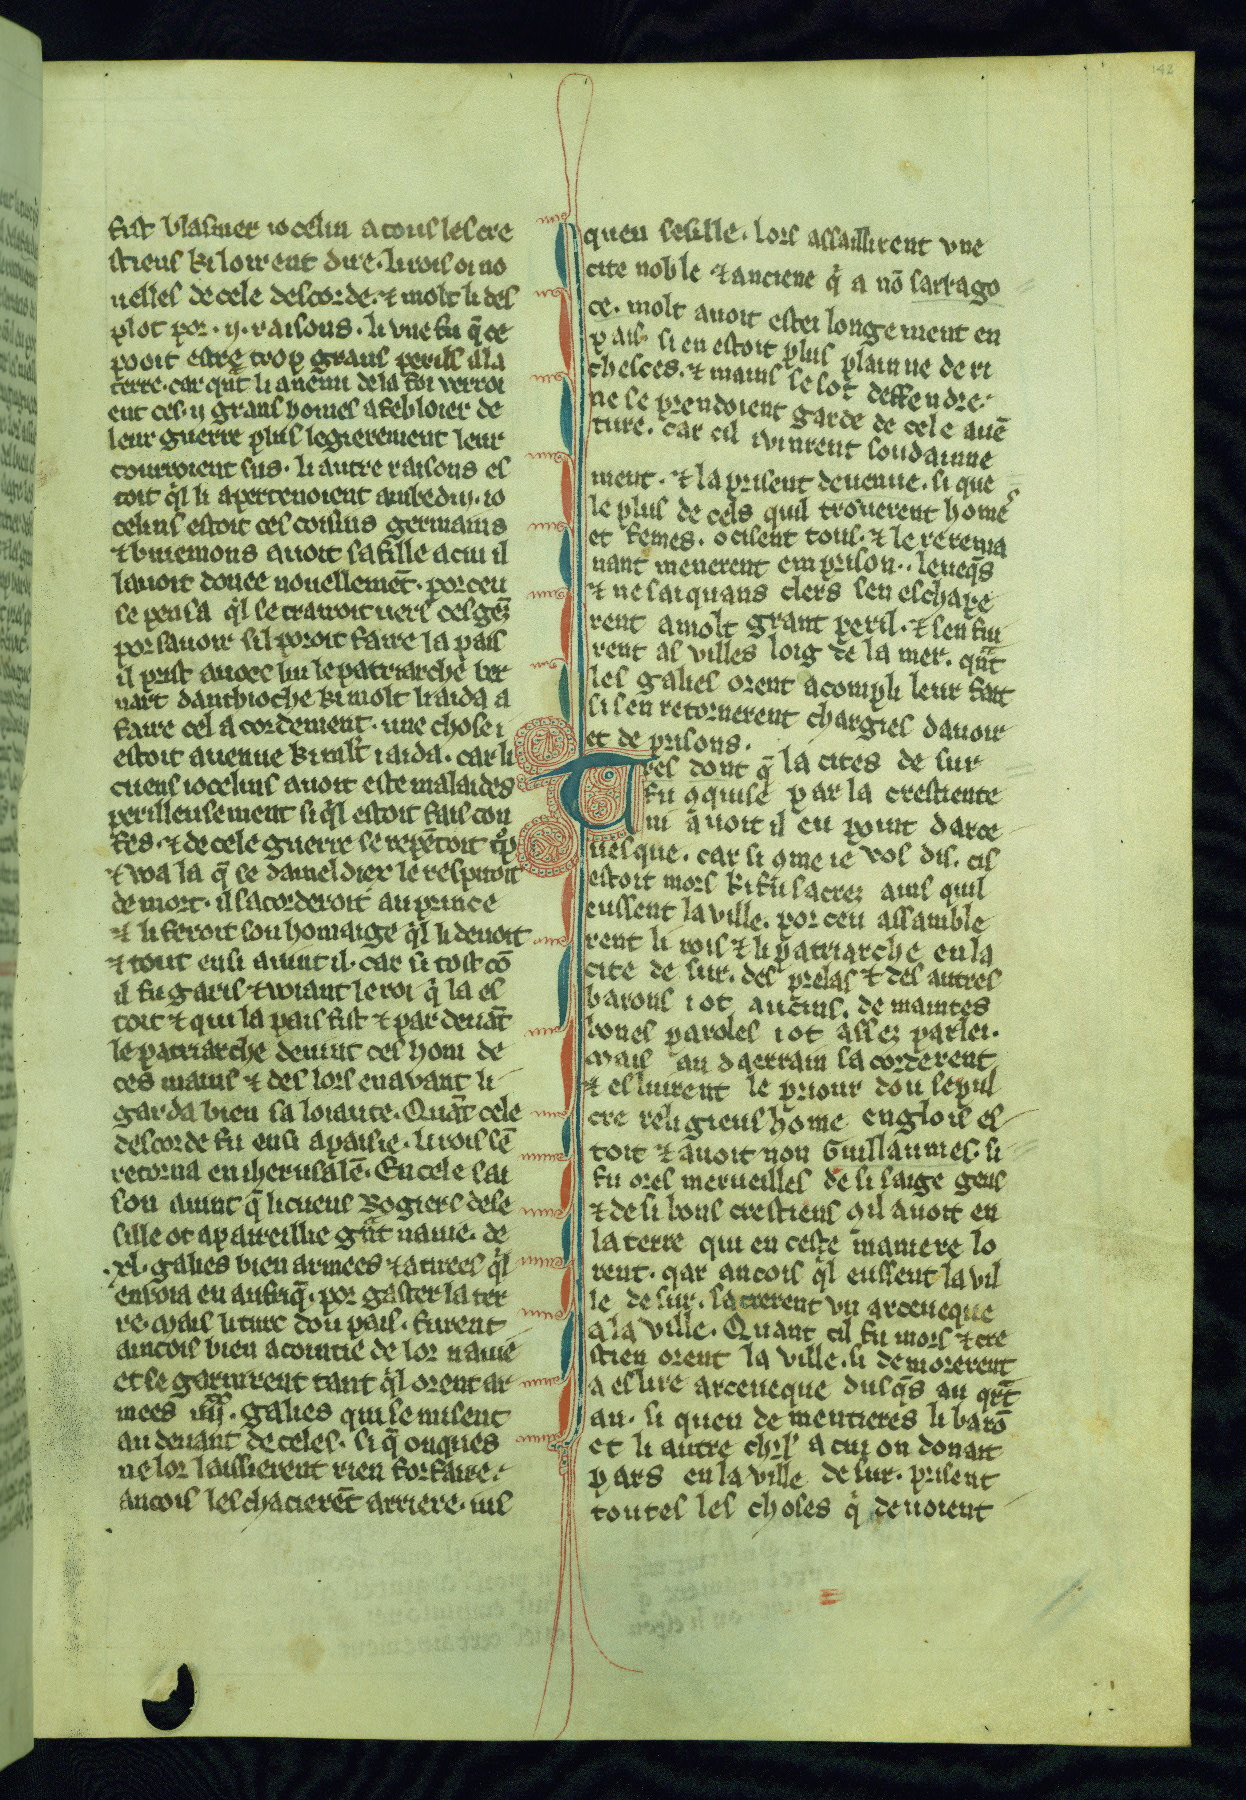 142
fist blasmer iocelin a tous les cre
stiens ki loirent dire. li rois oi no
uelles de cele descorde. ⁊ molt li des
plot por .ij. raisons. li vne fu q̄ ce
pooit estre trop grans perils a la
terre. car qn̄t li anemi de la foi verroi
ent ces .ij. grans homes afebloier de
leur guerre plus legierement leur
courroient sus. li autre raisons es
toit q̄l li apertenoient ambedui. io
celins estoit ces coisins germains
⁊ buiemons auoit sa fille a cui il
lauoit donee nouellemēt. por ceu
se pensa q̄l se trairoit uers ces gēz
por sauoir sil poroit faire la pais
il prist auoec lui le patriarche ber
nart danthioche ki molt li aida a
faire cel acordement. une chose i
estoit auenue ki mlt̄ i aida. car li
cuens iocelins auoit este malaides
perilleusement si q̄l estoit fais con
fes. ⁊ de cele guerre se repētoit tp̄
⁊ voa la q̄ se dameldiex le respitoit
de mort. il sacorderoit au prince
⁊ li feroit son homaige q̄l li deuoit
⁊ tout ensi auint il. car si tost cō
il fu garis ⁊ voiant le roi q̄ la es
toit ⁊ qui la pais fist ⁊ par deuāt
le patriarche deuint ces hom de
ces mains ⁊ des lors en auant li
garda bien sa loiaute. Quāt cele
descorde fu ensi apaisie. li rois sē
retorna en iherusalē. En cele sai
son auint q̄ li cuens Rogiers de se
sille ot apareillie grāt nauie. de
.xl. galies bien armees ⁊ atirees q̄l
enuoia en aufriq̄. por gaster la ter
re. Mais li turc dou pais. furent
aincois bien acointie de lor nauie
et se garnirent tant q̄l orent ar
mees .iiij. galies qui se misent
au deuant de celes. si q̄ onques
ne lor laissierent rien forfaire.
ancois les chacierēt arriere. ius
quen sesille. lors assaillirent vne
cite noble ⁊ anciene q̄ a nō sarrago
ce. molt auoit estei longement en
pais. si en estoit plus plainne de ri
chesces. ⁊ mains se sot deffendre.
ne se prendoient garde de cele auē
ture. car cil i vinrent soudainne
ment. ⁊ la prisent deuenue. si que
le plus de cels quil trouerent homes
et femes. ocisent tous. ⁊ le remena
nant menerent em prison. leueq̄s
⁊ ne sai quans clers sen eschape
rent a molt grant peril. ⁊ sen fui
rent as villes loig de la mer. qn̄t
les galies orent acompli leur fait
si sen retornerent chargies dauoir
et de prisons.
Tres dont q̄ la cites de sur
fu aquise par la crestiente
ni auoit il eu point darce
uesque. car si ome ie vos dis. cil
estoit mors ki fu sacrez ains quil
eussent la ville. por ceu assamble
rent li rois ⁊ li patriarche en la
cite de sur. des prelas ⁊ des autres
barons i ot aucuns. de maintes
bones paroles i ot assez parlei.
Mais au daerrain sacorderent
⁊ esluirent le priour dou sepul
cre religieus home englois es
toit ⁊ auoit non Guillaumes. si
fu ores merueilles de si saige gens
⁊ de si bons crestiens q̄l auoit en
la terre qui en ceste maniere lo
rent. qar ancois q̄l eussent la vil
le de sur. sacrerent vn arceueque
a la ville. Quant cil fu mors ⁊ cre
stien orent la ville. si demorerent
a eslire arceueque dusq̄s au qr̄t
an. si queu de mentieres li barō
et li autre chl̄r a cui on donait
pars en la ville de sur. prisent
toutes les choses q̄ deuoient